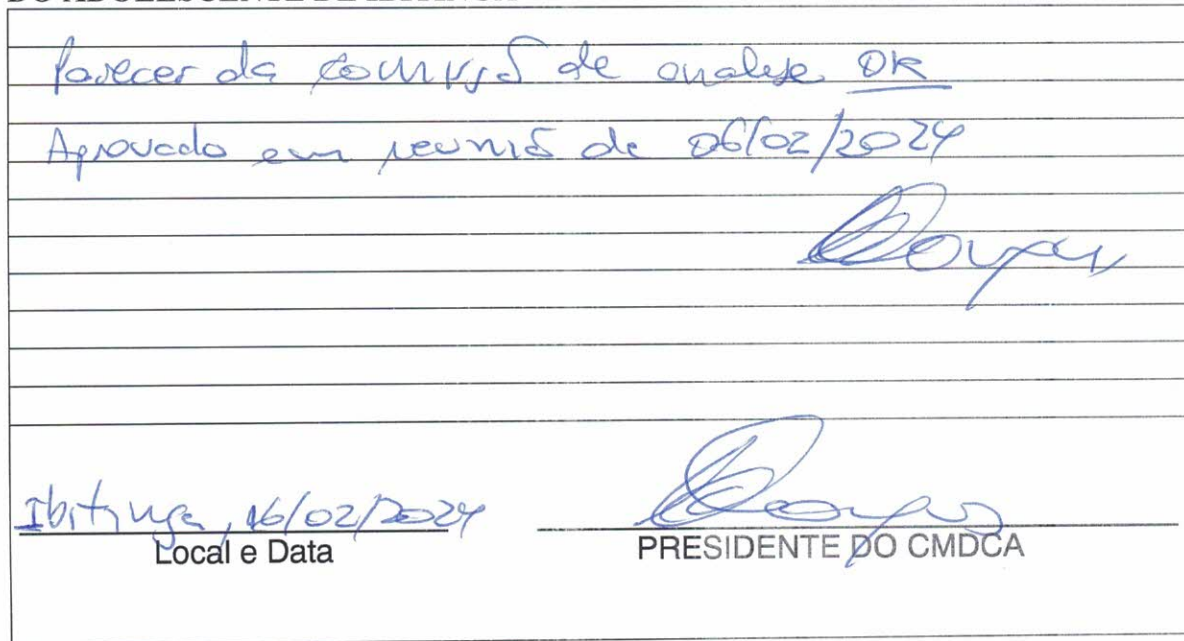 parecer da comissã de analise OK
Aprovado em reuniã de 06/02/2024
Ibitinga, 16/02/2024
Local e Data
PRESIDENTE DO CMDCA